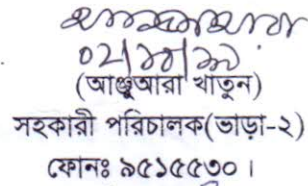 (আঞ্জুআরা খাতুন)
সহকারী পরিচালক(ভাড়া-২)
ফোনঃ ৯৫১৫৫৩০।